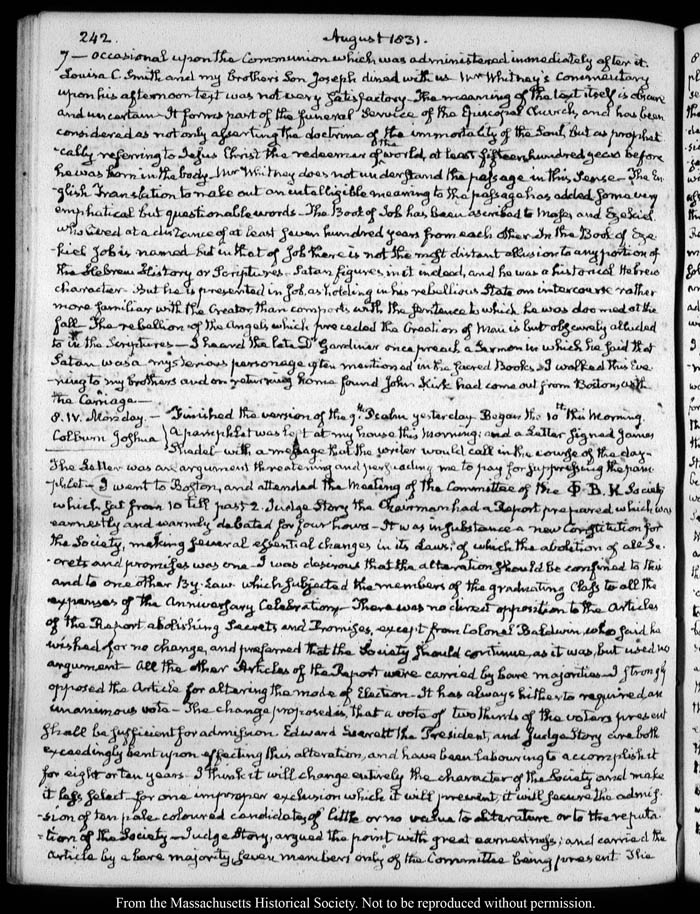 242.
August 1831.
7 — occasional upon the Communion which was administered immediately after it.
Louisa C. Smith and my brother's Son Joseph dined with us Mr Whitney's Commentary
upon his afternoon text was not very satisfactory — The meaning of the text itself is obscure
and uncertain — It forms part of the funeral Service of the Episcopal Church, and has been
considered as not only asserting the doctrine of the immortality of the Soul, but as propheti
-cally referring to Jesus Christ the redeemer of the world, at least fifteen hundred years before
he was born in the body — Mr Whitney does not understand the passage in this Sense — The En
glish Translation to make out an intelligible meaning to the passage has added some very
emphatical but questionable words — The Book of Job has been ascribed to Moses and Ezekiel
who lived at a distance of at least seven hundred years from each other. In the Book of Eze
kiel Job is named but in that of Job there is not the most distant allusion to any portion of
the Hebrew History or Scriptures. Satan figures in it indeed, and he was a historical Hebrew
character. But he is presented in Job, as holding in his rebellious State an intercourse rather
more familiar with the Creator, than comports with the sentence to which he was doomed at the
fall — The rebellion of the Angels which preceded the Creation of Man is but obscurely alluded
to in the Scriptures — I heard the late Dr Gardiner once preach a Sermon in which he said that
Satan was a mysterious personage often mentioned in the sacred Books. I walked this Eve
-ning to my brothers and on returning home found John Kirk had come out from Boston, with
the Carriage —
8. IV. Monday. — Finished the version of the 9th Psalm yesterday. Began the 10th this morning.
Colburn Joshua } A pamphlet was left at my house this morning; and a Letter signed James
Rhedel with a message that the writer would call in the course of the day —
The Letter was an argument threatening and persuading me to pay for suppressing the pam
-phlet — I went to Boston, and attended the Meeting of the Committee of the Φ. B. K Society
which sat from 10 till past 2. Judge Story the Chairman had a Report prepared which was
earnestly and warmly debated for four hours — It was in substance a new Constitution for
the Society, making several essential changes in its Laws; of which the abolition of all Se-
-crets and promises was one — I was desirous that the alteration should be confined to this
and to one other By-Law which subjected the members of the graduating Class to all the
expenses of the Anniversary Celebration — There was no direct opposition to the Articles
of the Report abolishing Secrets and Promises, except from Colonel Baldwin who said he
wished for no change, and preferred that the Society should continue, as it was, but used no
argument — All the other Articles of the Report were carried by bare majorities — I strongly
opposed the Article for altering the mode of Election — It has always hitherto required an
unanimous vote — The change proposed is, that a vote of two thirds of the voters present
shall be sufficient for admission. Edward Everett the President, and Judge Story are both
exceedingly bent upon effecting this alteration, and have been labouring to accomplish it
for eight or ten years — I think it will change entirely the character of the Society and make
it less select — for one improper exclusion which it will prevent, it will secure the admis-
-sion of ten pale coloured candidates, of little or no value to Literature or to the reputa-
-tion of the Society — Judge Story, argued the point with great earnestness, and carried the
Article by a bare majority, seven members only of the Committee being present. The
From the Massachusetts Historical Society. Not to be reproduced without permission.